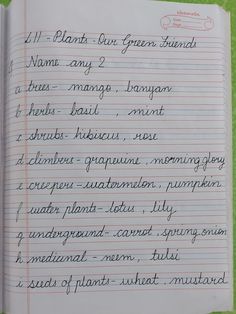 L11 - Plants - Our Green Friends
Name any 2
a trees - mango, banyan
b herbs - basil, mint
c shrubs - hibiscus, rose
d climbers - grapevine, morning glory
e creepers - watermelon, pumpkin
f water plants - lotus, lily
g underground - carrot, spring onion
h medicinal - neem, tulsi
i seeds of plants - wheat, mustard